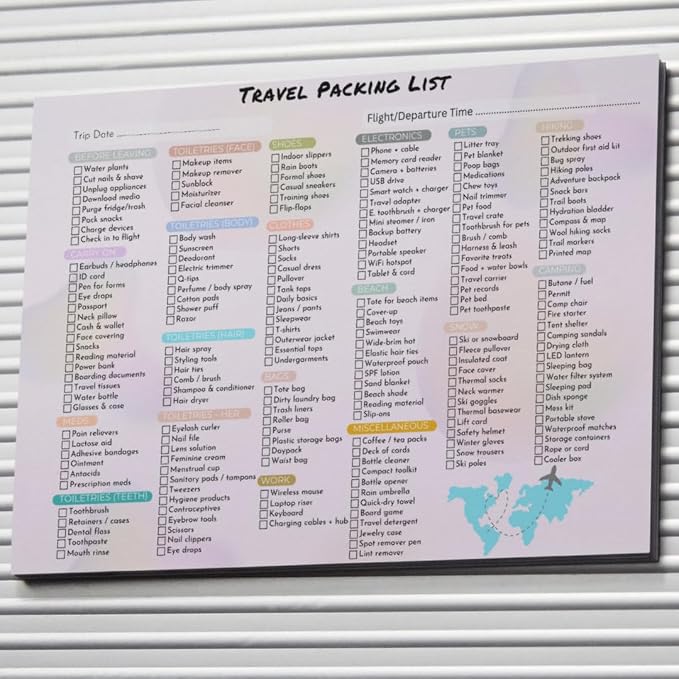 TRAVEL PACKING LIST
Trip Date
Flight/Departure Time
BEFORE LEAVING
Water plants
Cut nails & shave
Unplug appliances
Download media
Purge fridge/trash
Pack snacks
Charge devices
Check in to flight
CARRY ON
Earbuds / headphones
ID card
Pen for forms
Eye drops
Passport
Neck pillow
Cash & wallet
Face covering
Snacks
Reading material
Power bank
Boarding documents
Travel tissues
Water bottle
Glasses & case
MEDS
Pain relievers
Lactose aid
Adhesive bandages
Ointment
Antacids
Prescription meds
TOILETRIES (TEETH)
Toothbrush
Retainers / cases
Dental floss
Toothpaste
Mouth rinse
TOILETRIES (FACE)
Makeup items
Makeup remover
Sunblock
Moisturizer
Facial cleanser
TOILETRIES (BODY)
Body wash
Sunscreen
Deodorant
Electric trimmer
Q-tips
Perfume / body spray
Cotton pads
Shower puff
Razor
TOILETRIES (HAIR)
Hair spray
Styling tools
Hair ties
Comb / brush
Shampoo & conditioner
Hair dryer
TOILETRIES - HER
Eyelash curler
Nail file
Lens solution
Feminine cream
Menstrual cup
Sanitary pads / tampons
Tweezers
Hygiene products
Contraceptives
Eyebrow tools
Scissors
Nail clippers
Eye drops
SHOES
Indoor slippers
Rain boots
Formal shoes
Casual sneakers
Training shoes
Flip-flops
CLOTHES
Long-sleeve shirts
Shorts
Socks
Casual dress
Pullover
Tank tops
Daily basics
Jeans / pants
Sleepwear
T-shirts
Outerwear jacket
Essential tops
Undergarments
BAGS
Tote bag
Dirty laundry bag
Trash liners
Roller bag
Purse
Plastic storage bags
Daypack
Waist bag
WORK
Wireless mouse
Laptop riser
Keyboard
Charging cables + hub
ELECTRONICS
Phone + cable
Memory card reader
Camera + batteries
USB drive
Smart watch + charger
Travel adapter
E. toothbrush + charger
Mini steamer / iron
Backup battery
Headset
Portable speaker
WiFi hotspot
Tablet & cord
BEACH
Tote for beach items
Cover-up
Beach toys
Swimwear
Wide-brim hat
Elastic hair ties
Waterproof pouch
SPF lotion
Sand blanket
Beach shade
Reading material
Slip-ons
MISCELLANEOUS
Coffee / tea packs
Deck of cards
Bottle cleaner
Compact toolkit
Bottle opener
Rain umbrella
Quick-dry towel
Board game
Travel detergent
Jewelry case
Spot remover pen
Lint remover
PETS
Litter tray
Pet blanket
Poop bags
Medications
Chew toys
Nail trimmer
Pet food
Travel crate
Toothbrush for pets
Brush / comb
Harness & leash
Favorite treats
Food + water bowls
Travel carrier
Pet records
Pet bed
Pet toothpaste
SNOW
Ski or snowboard
Fleece pullover
Insulated coat
Face cover
Thermal socks
Neck warmer
Ski goggles
Thermal basewear
Lift card
Safety helmet
Winter gloves
Snow trousers
Ski poles
HIKING
Trekking shoes
Outdoor first aid kit
Bug spray
Hiking poles
Adventure backpack
Snack bars
Trail boots
Hydration bladder
Compass & map
Wool hiking socks
Trail markers
Printed map
CAMPING
Butane / fuel
Permit
Camp chair
Fire starter
Tent shelter
Camping sandals
Drying cloth
LED lantern
Sleeping bag
Water filter system
Sleeping pad
Dish sponge
Mess kit
Portable stove
Waterproof matches
Storage containers
Rope or cord
Cooler box